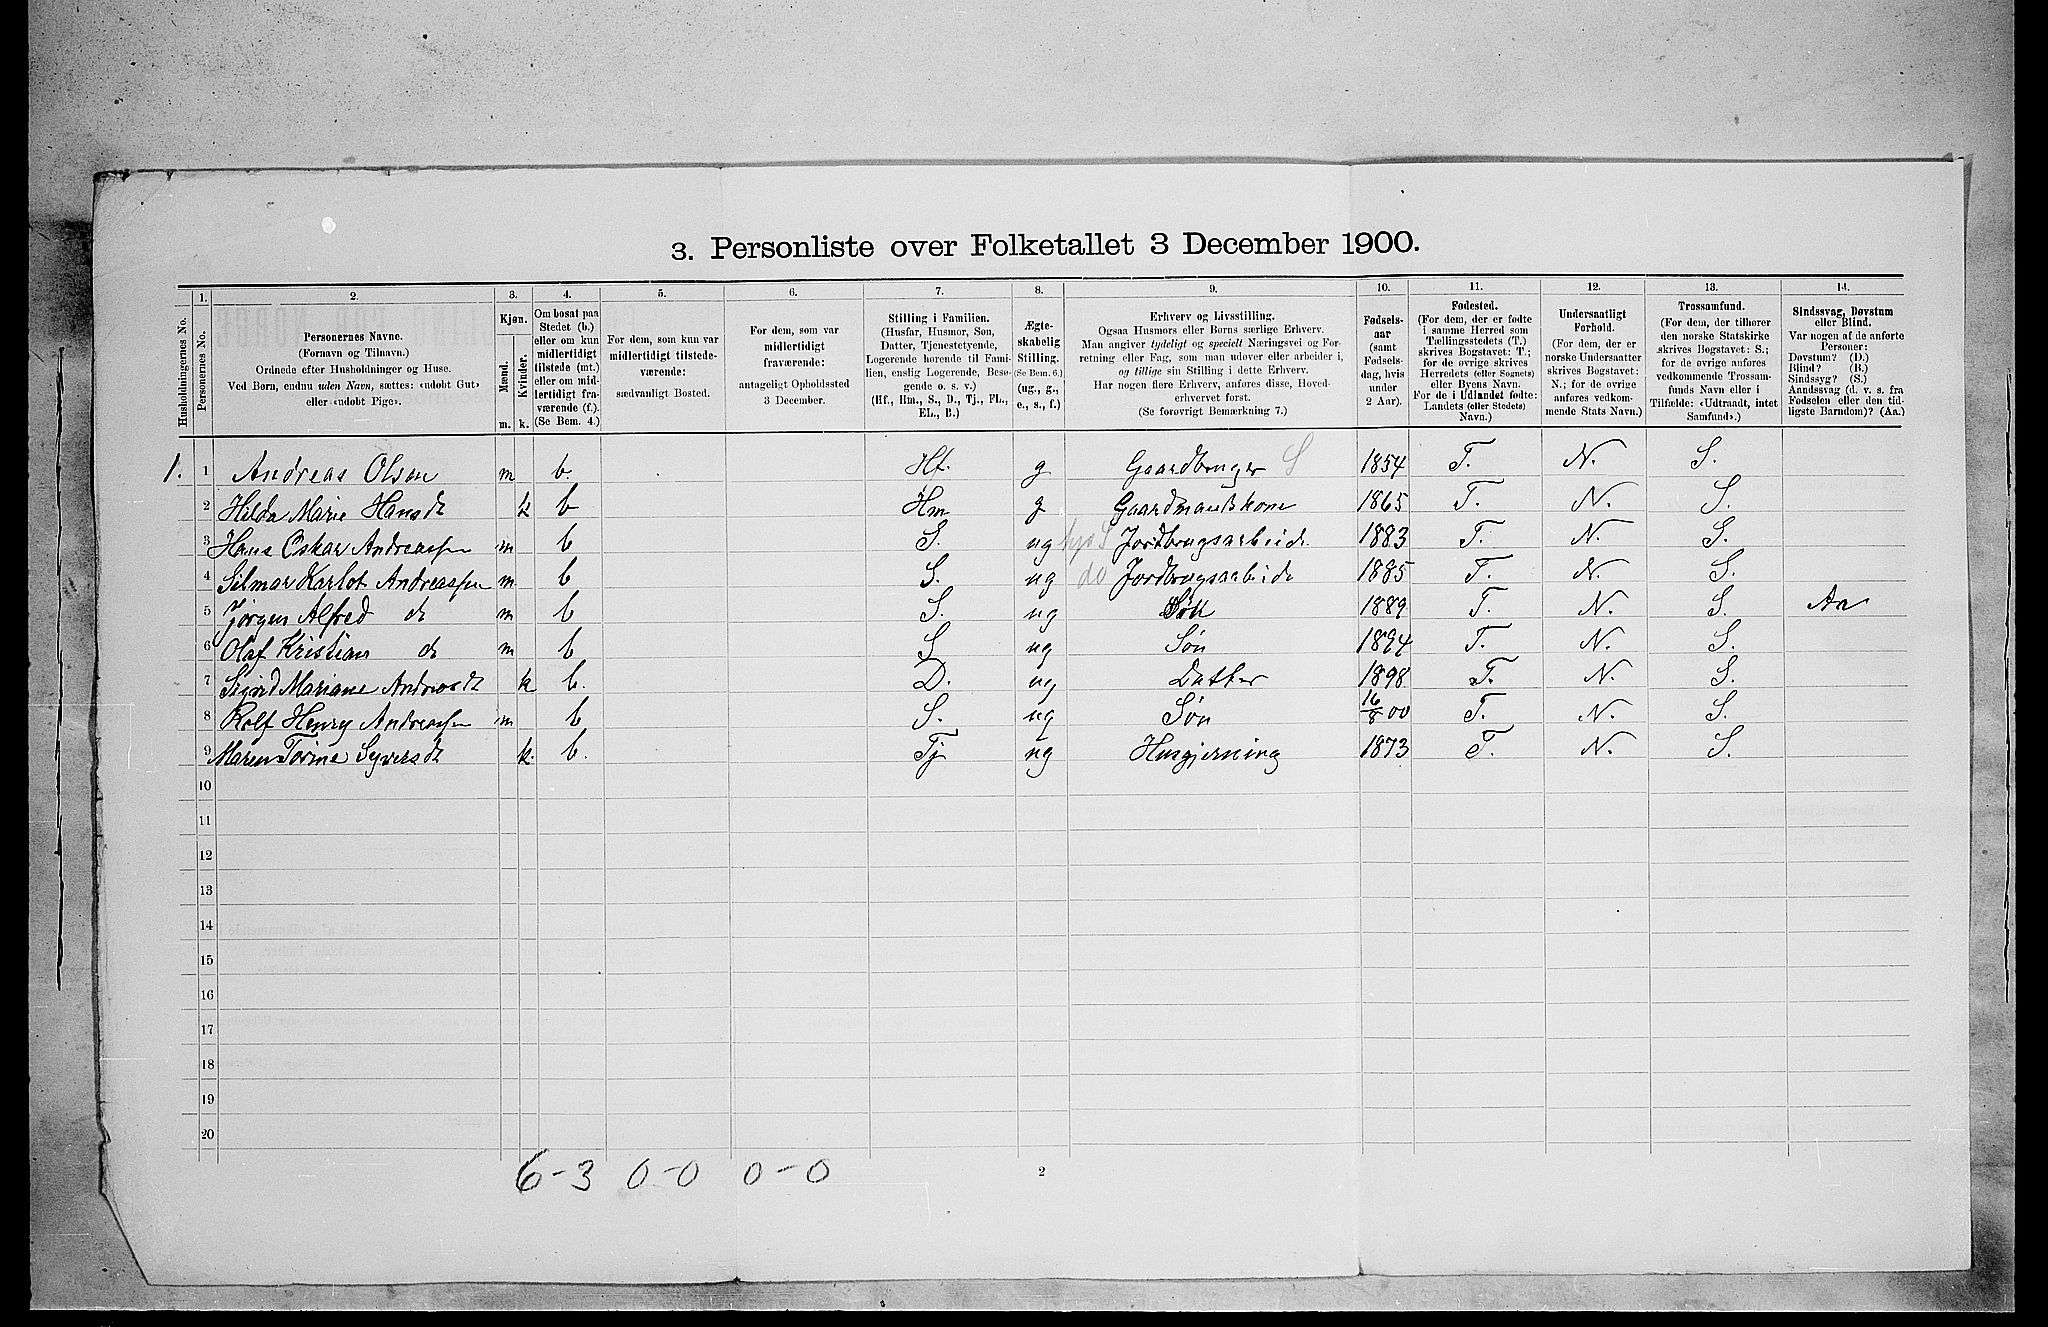 3. Personliste over Folketallet 3 December 1900.
Husholdningernes No.
1.
Personernes No.
2.
Personernes Navne.
(Fornavn og Tilnavn.)
Ordnede efter Husholdninger og Huse.
Ved Børn, endnu uden Navn, sættes: «udøbt Gut»
eller «udøbt Pige».
3.
Kjøn.
Mænd.
Kvinder.
m. k.
4.
Om bosat paa
Stedet (b.)
eller om kun
midlertidigt
tilstede (mt.)
eller om mid-
lertidigt fra-
værende (f.).
(Se Bem. 4.)
5.
For dem, som kun var
midlertidigt tilstede-
værende:
sædvanligt Bosted.
6.
For dem, som var
midlertidigt
fraværende:
antageligt Opholdssted
3 December.
7.
Stilling i Familien.
(Husfar, Husmor, Søn,
Datter, Tjenestetyende,
Logerende hørende til Fami-
lien, enslig Logerende, Besø-
gende o. s. v.)
(Hf., Hm., S., D., Tj., FL.,
EL., B.)
8.
Ægte-
skabelig
Stilling.
(Se Bem. 6.)
(ug., g.,
e., s., f.)
9.
Erhverv og Livsstilling.
Ogsaa Husmors eller Børns særlige Erhverv.
Man angiver tydeligt og specielt Næringsvei og For-
retning eller Fag, som man udøver eller arbeider i,
og tillige sin Stilling i dette Erhverv.
Har nogen flere Erhverv, anføres disse, Hoved-
erhvervet først.
(Se forøvrigt Bemærkning 7.)
10.
Fødsels-
aar
(samt
Fødsels-
dag, hvis
under
2 Aar).
11.
Fødested.
(For dem, der er fødte
i samme Herred som
Tællingsstedets (T.)
skrives Bogstavet: T.;
for de øvrige skrives
Herredets (eller Sognets)
eller Byens Navn.
For de i Udlandet fødte:
Landets (eller Stedets)
Navn.)
12.
Undersaatligt
Forhold.
(For dem, der er
norske Undersaatter
skrives Bogstavet:
N.; for de øvrige
anføres vedkom-
mende Stats Navn.)
13.
Trossamfund.
(For dem, der tilhører
den norske Statskirke
skrives Bogstavet: S.;
for de øvrige anføres
vedkommende Trossam-
funds Navn eller i
Tilfælde: «Udtraadt, intet
Samfund».)
14.
Sindssvag, Døvstum
eller Blind.
Var nogen af de anførte
Personer:
Døvstum? (D.)
Blind? (B.)
Sindssyg? (S.)
Aandssvag (d. v. s. fra
Fødselen eller den tid-
ligste Barndom)? (Aa.)
1. 1 Andreas Olsen m b. Hf. g Gaardbruger S 1854 T. N. S.
2 Hilda Marie Hansdt k b Hm g Gaardmandskone 1865 T. N. S.
3 Hans Oskar Andreassen m b S. ug Jordbrugsarbeide 1883 T. N. S.
4 Karlot Andreassen m. b S. ug do Jordbrugsarbeide 1885 T. N. S.
5 Jørgen Alfred do m b S. ug Søn 1889 T. N. S. Aa
6 Olaf Kristian do m b S ug Søn 1894 T. N. S.
7 Sigrid Mariane Andreasdt k b. D. ug Datter 1898 T. N. S.
8 Rolf Henry Andreassen m b S. ug Søn 16/8 00 T. N. S.
9 Maren Torine Syversdt k. b. Tj ug Husgjerning 1873 T. N. S.
10
11
12
13
14
15
16
17
18
19
20
6-3 0-0 0-0
2